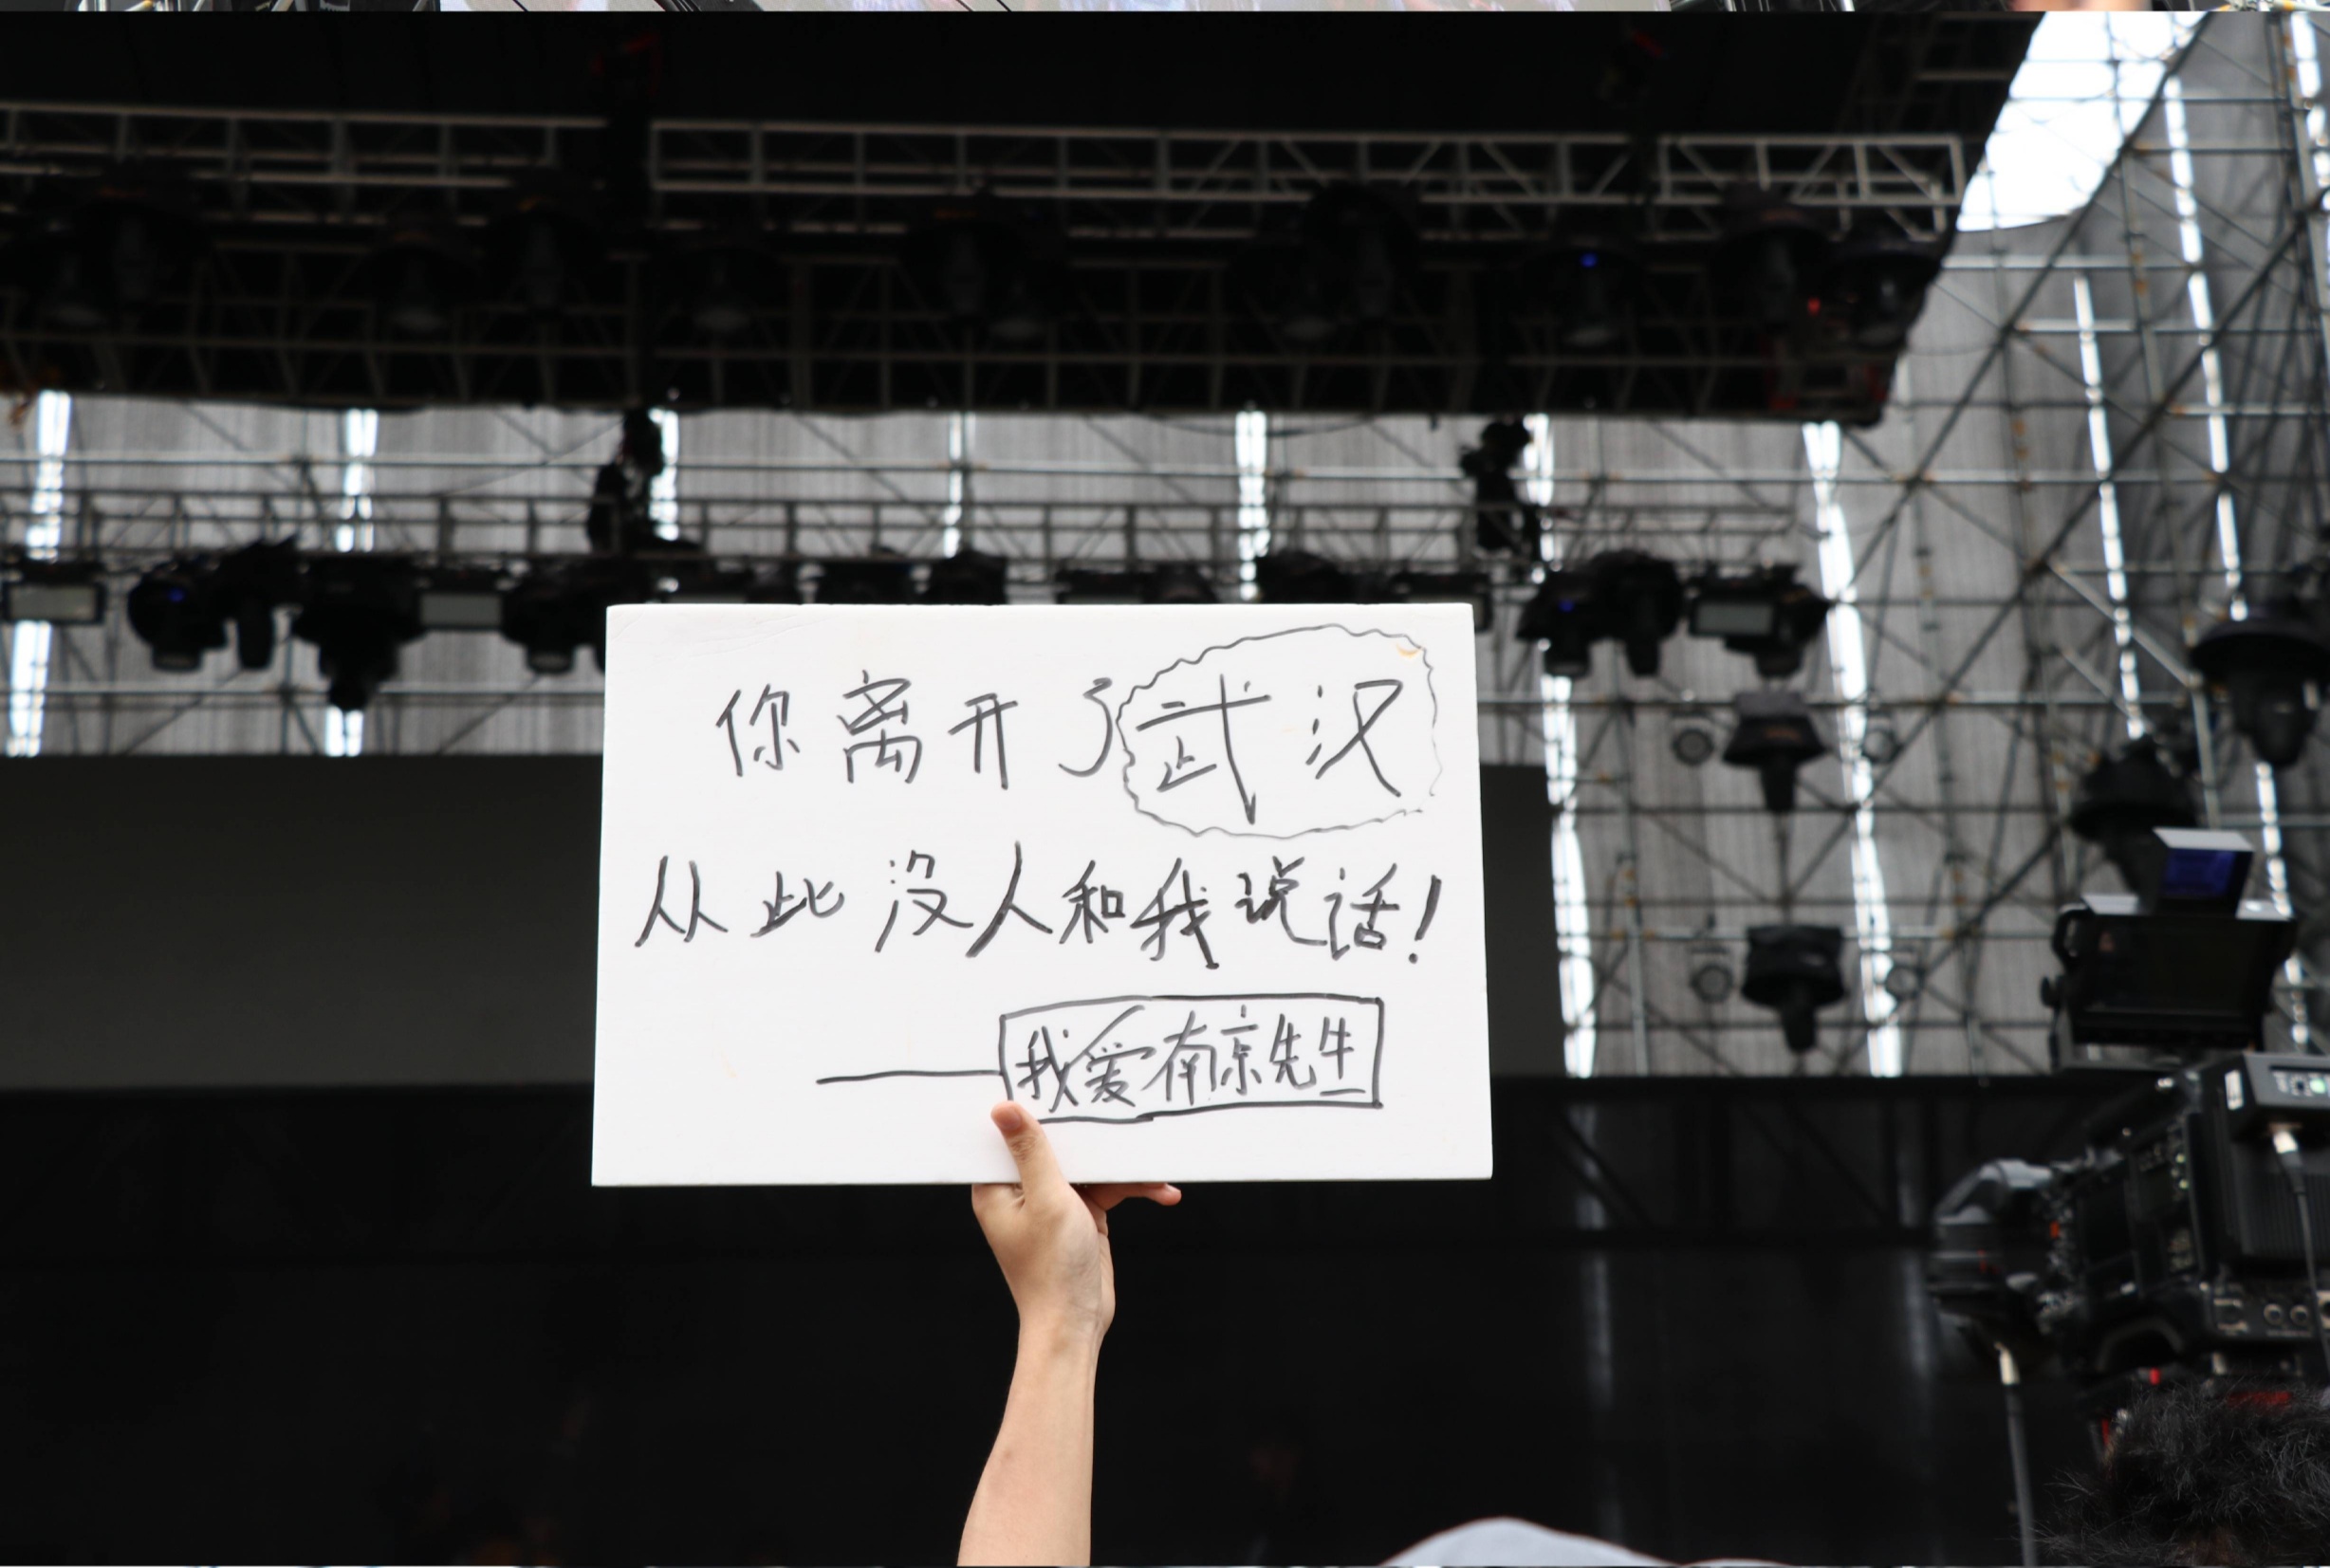 你离开了武汉
从此没人和我说话!
——我爱南京先生